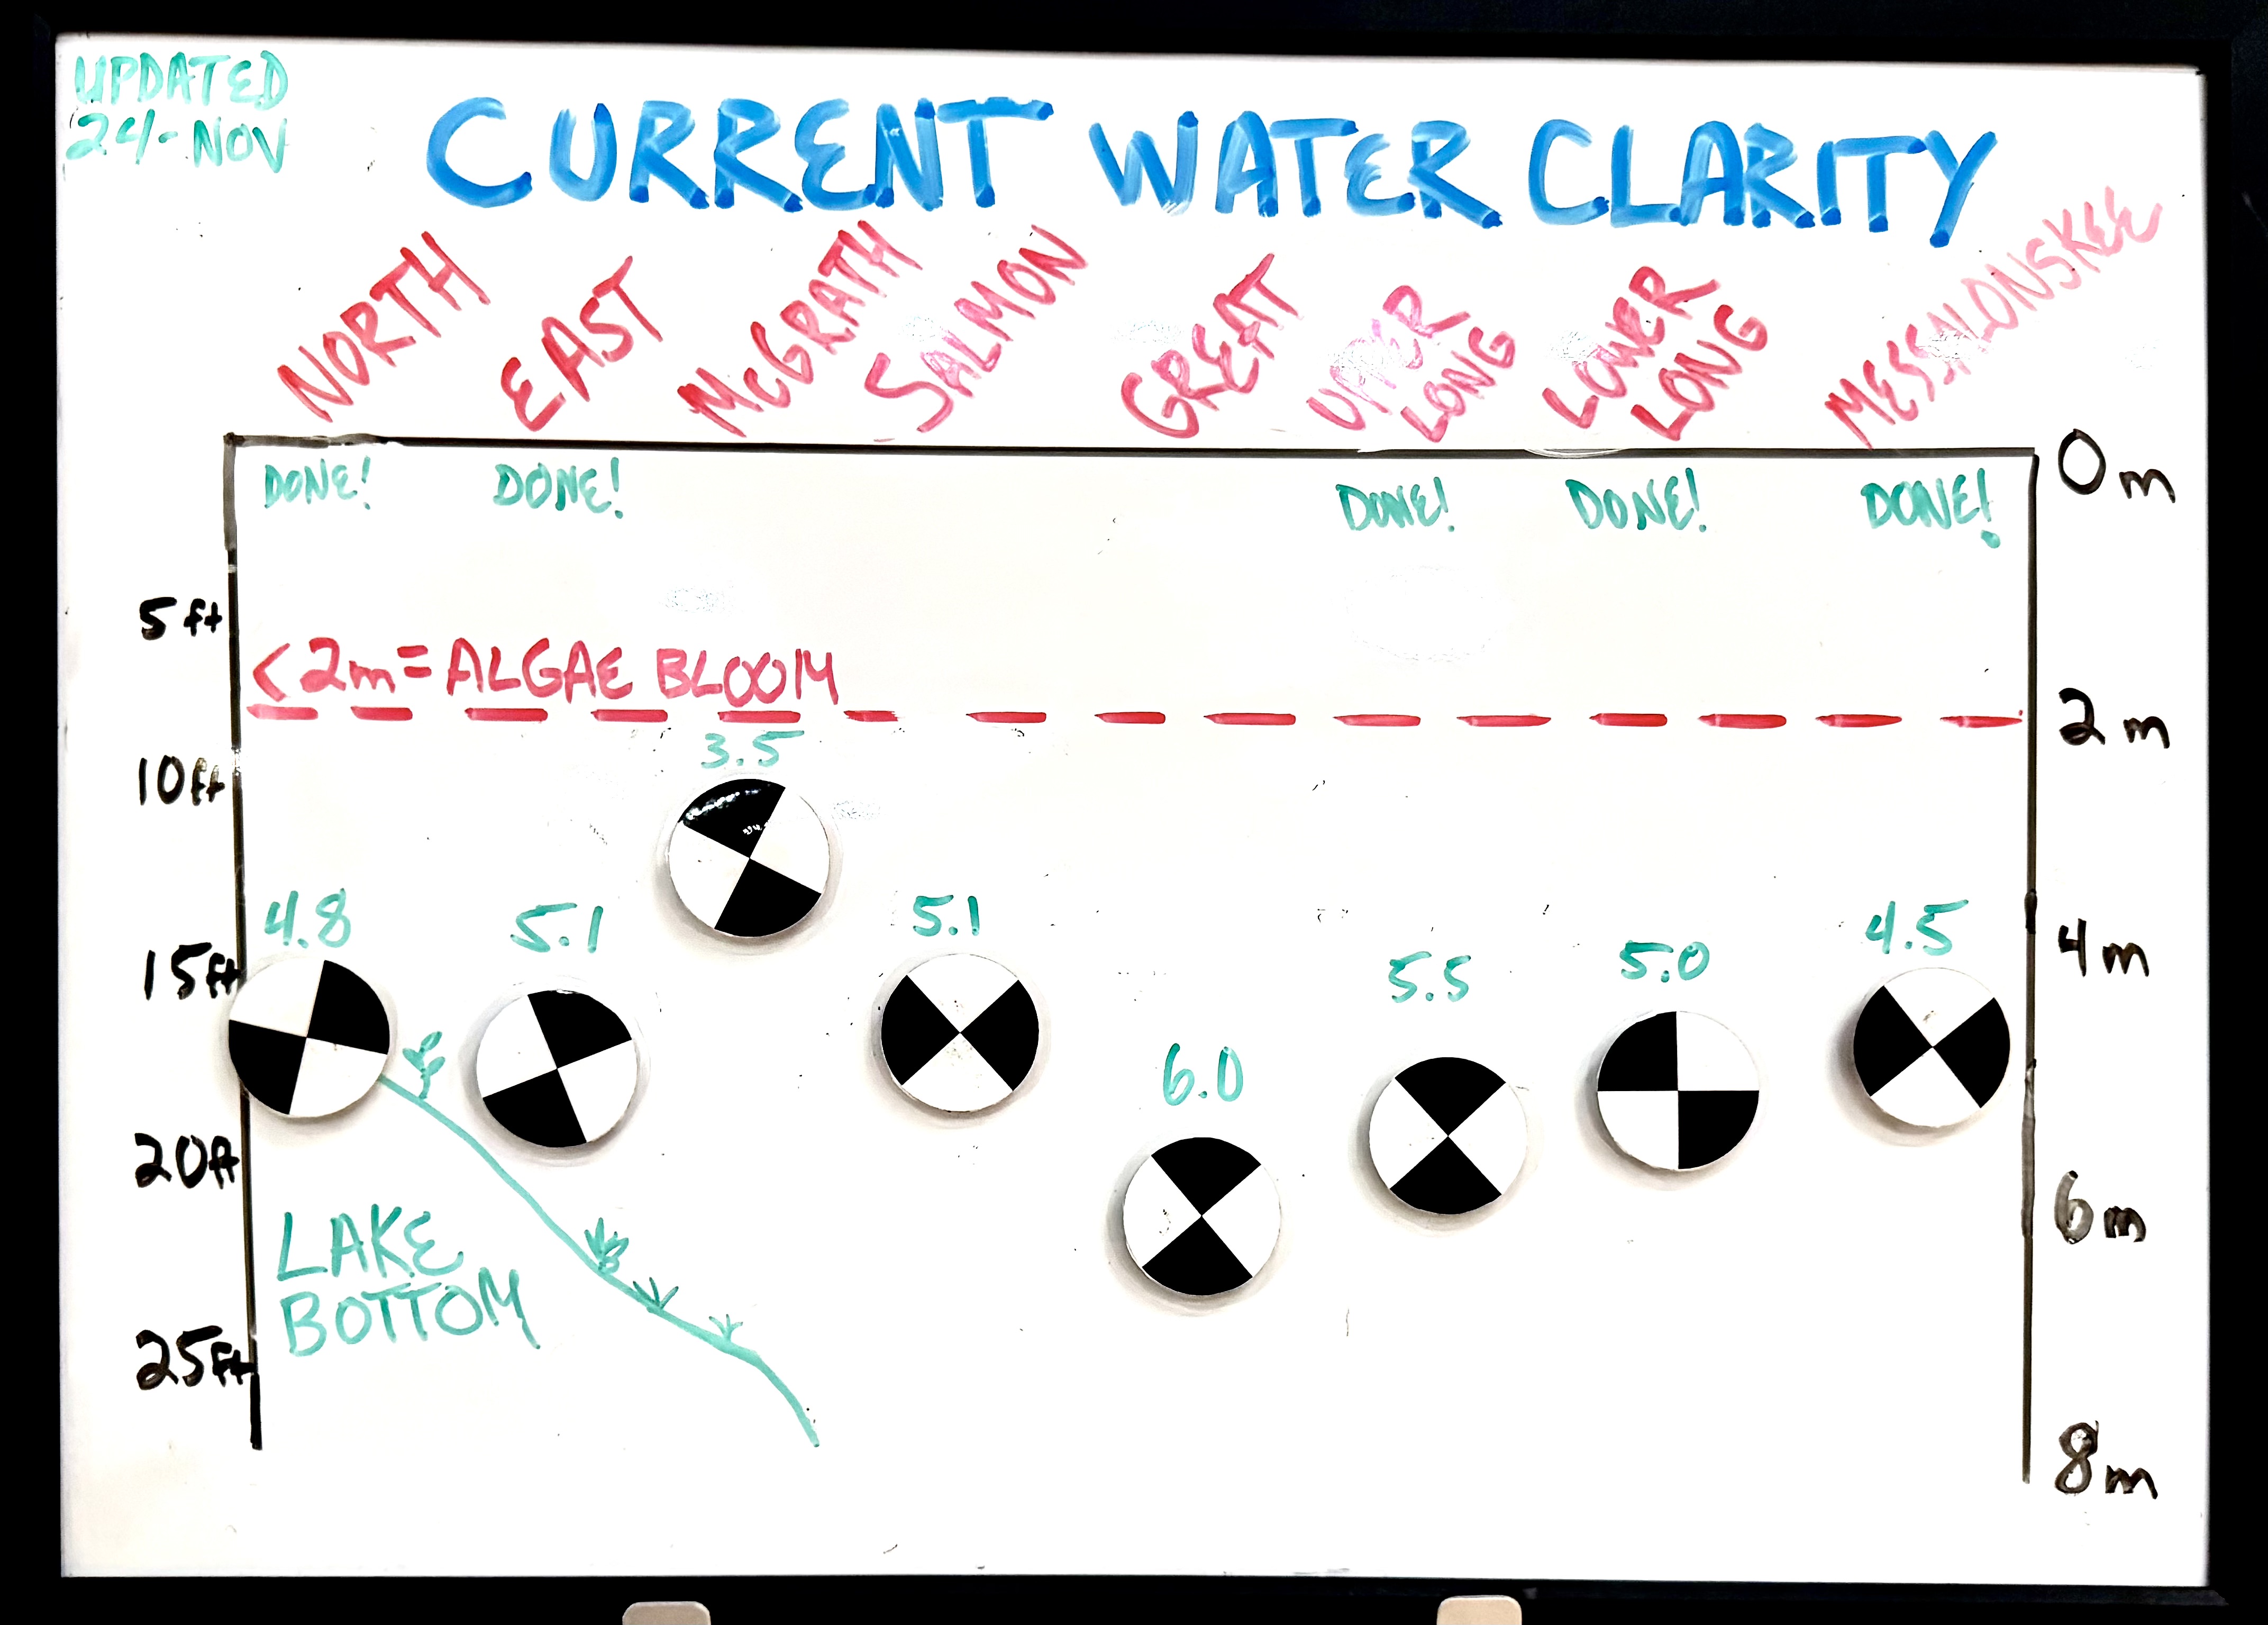 UPDATED
24-NOV
CURRENT WATER CLARITY
NORTH
EAST
McGRATH
SALMON
GREAT
UPPER
LONG
LOWER
LONG
MESSALONSKEE
DONE!
DONE!
DONE!
DONE!
DONE!
0m
5ft
<2m=ALGAE BLOOM
2m
10ft
3.5
4.8
5.1
5.1
6.0
5.5
5.0
4.5
15ft
4m
20ft
6m
LAKE
BOTTOM
25ft
8m